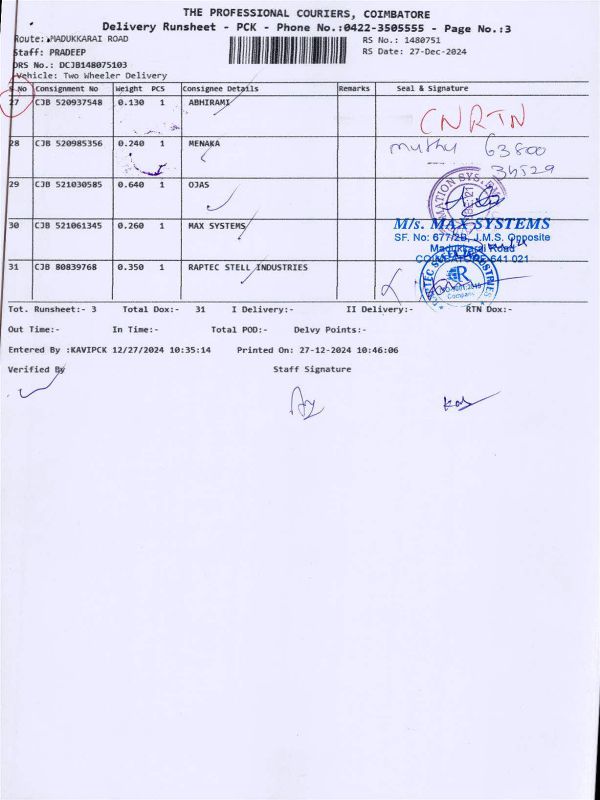 THE PROFESSIONAL COURIERS, COIMBATORE
Delivery Runsheet - PCK - Phone No.:0422-3505555 - Page No.:3
Route: MADUKKARAI ROAD
RS No.: 1480751
Staff: PRADEEP
RS Date: 27-Dec-2024
DRS No.: DCJB148075103
Vehicle: Two Wheeler Delivery
S.No Consignment No Weight PCS Consignee Details Remarks Seal & Signature
27 CJB 520937548 0.130 1 ABHIRAMI
CNRTN
28 CJB 520985356 0.240 1 MENAKA
muthu 63800
34529
29 CJB 521030585 0.640 1 OJAS
30 CJB 521061345 0.260 1 MAX SYSTEMS
M/s. MAX SYSTEMS
SF. No: 677/2B, J.M.S. Opposite
Madukkarai Road
COIMBATORE-641 021
31 CJB 80839768 0.350 1 RAPTEC STELL INDUSTRIES
Tot. Runsheet:- 3 Total Dox:- 31 I Delivery:- II Delivery:- RTN Dox:-
Out Time:- In Time:- Total POD:- Delvy Points:-
Entered By :KAVIPCK 12/27/2024 10:35:14 Printed On: 27-12-2024 10:46:06
Verified By Staff Signature